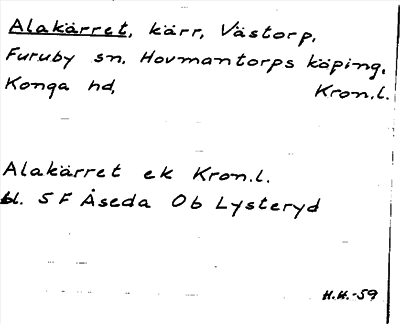 Alakärret, kärr, Västorp,
Furuby sn. Hovmantorps köping,
Konga hd, Kron.l.
Alakärret ek Kron.l.
bl. 5 F Åseda Ob Lysteryd
H.H.-59